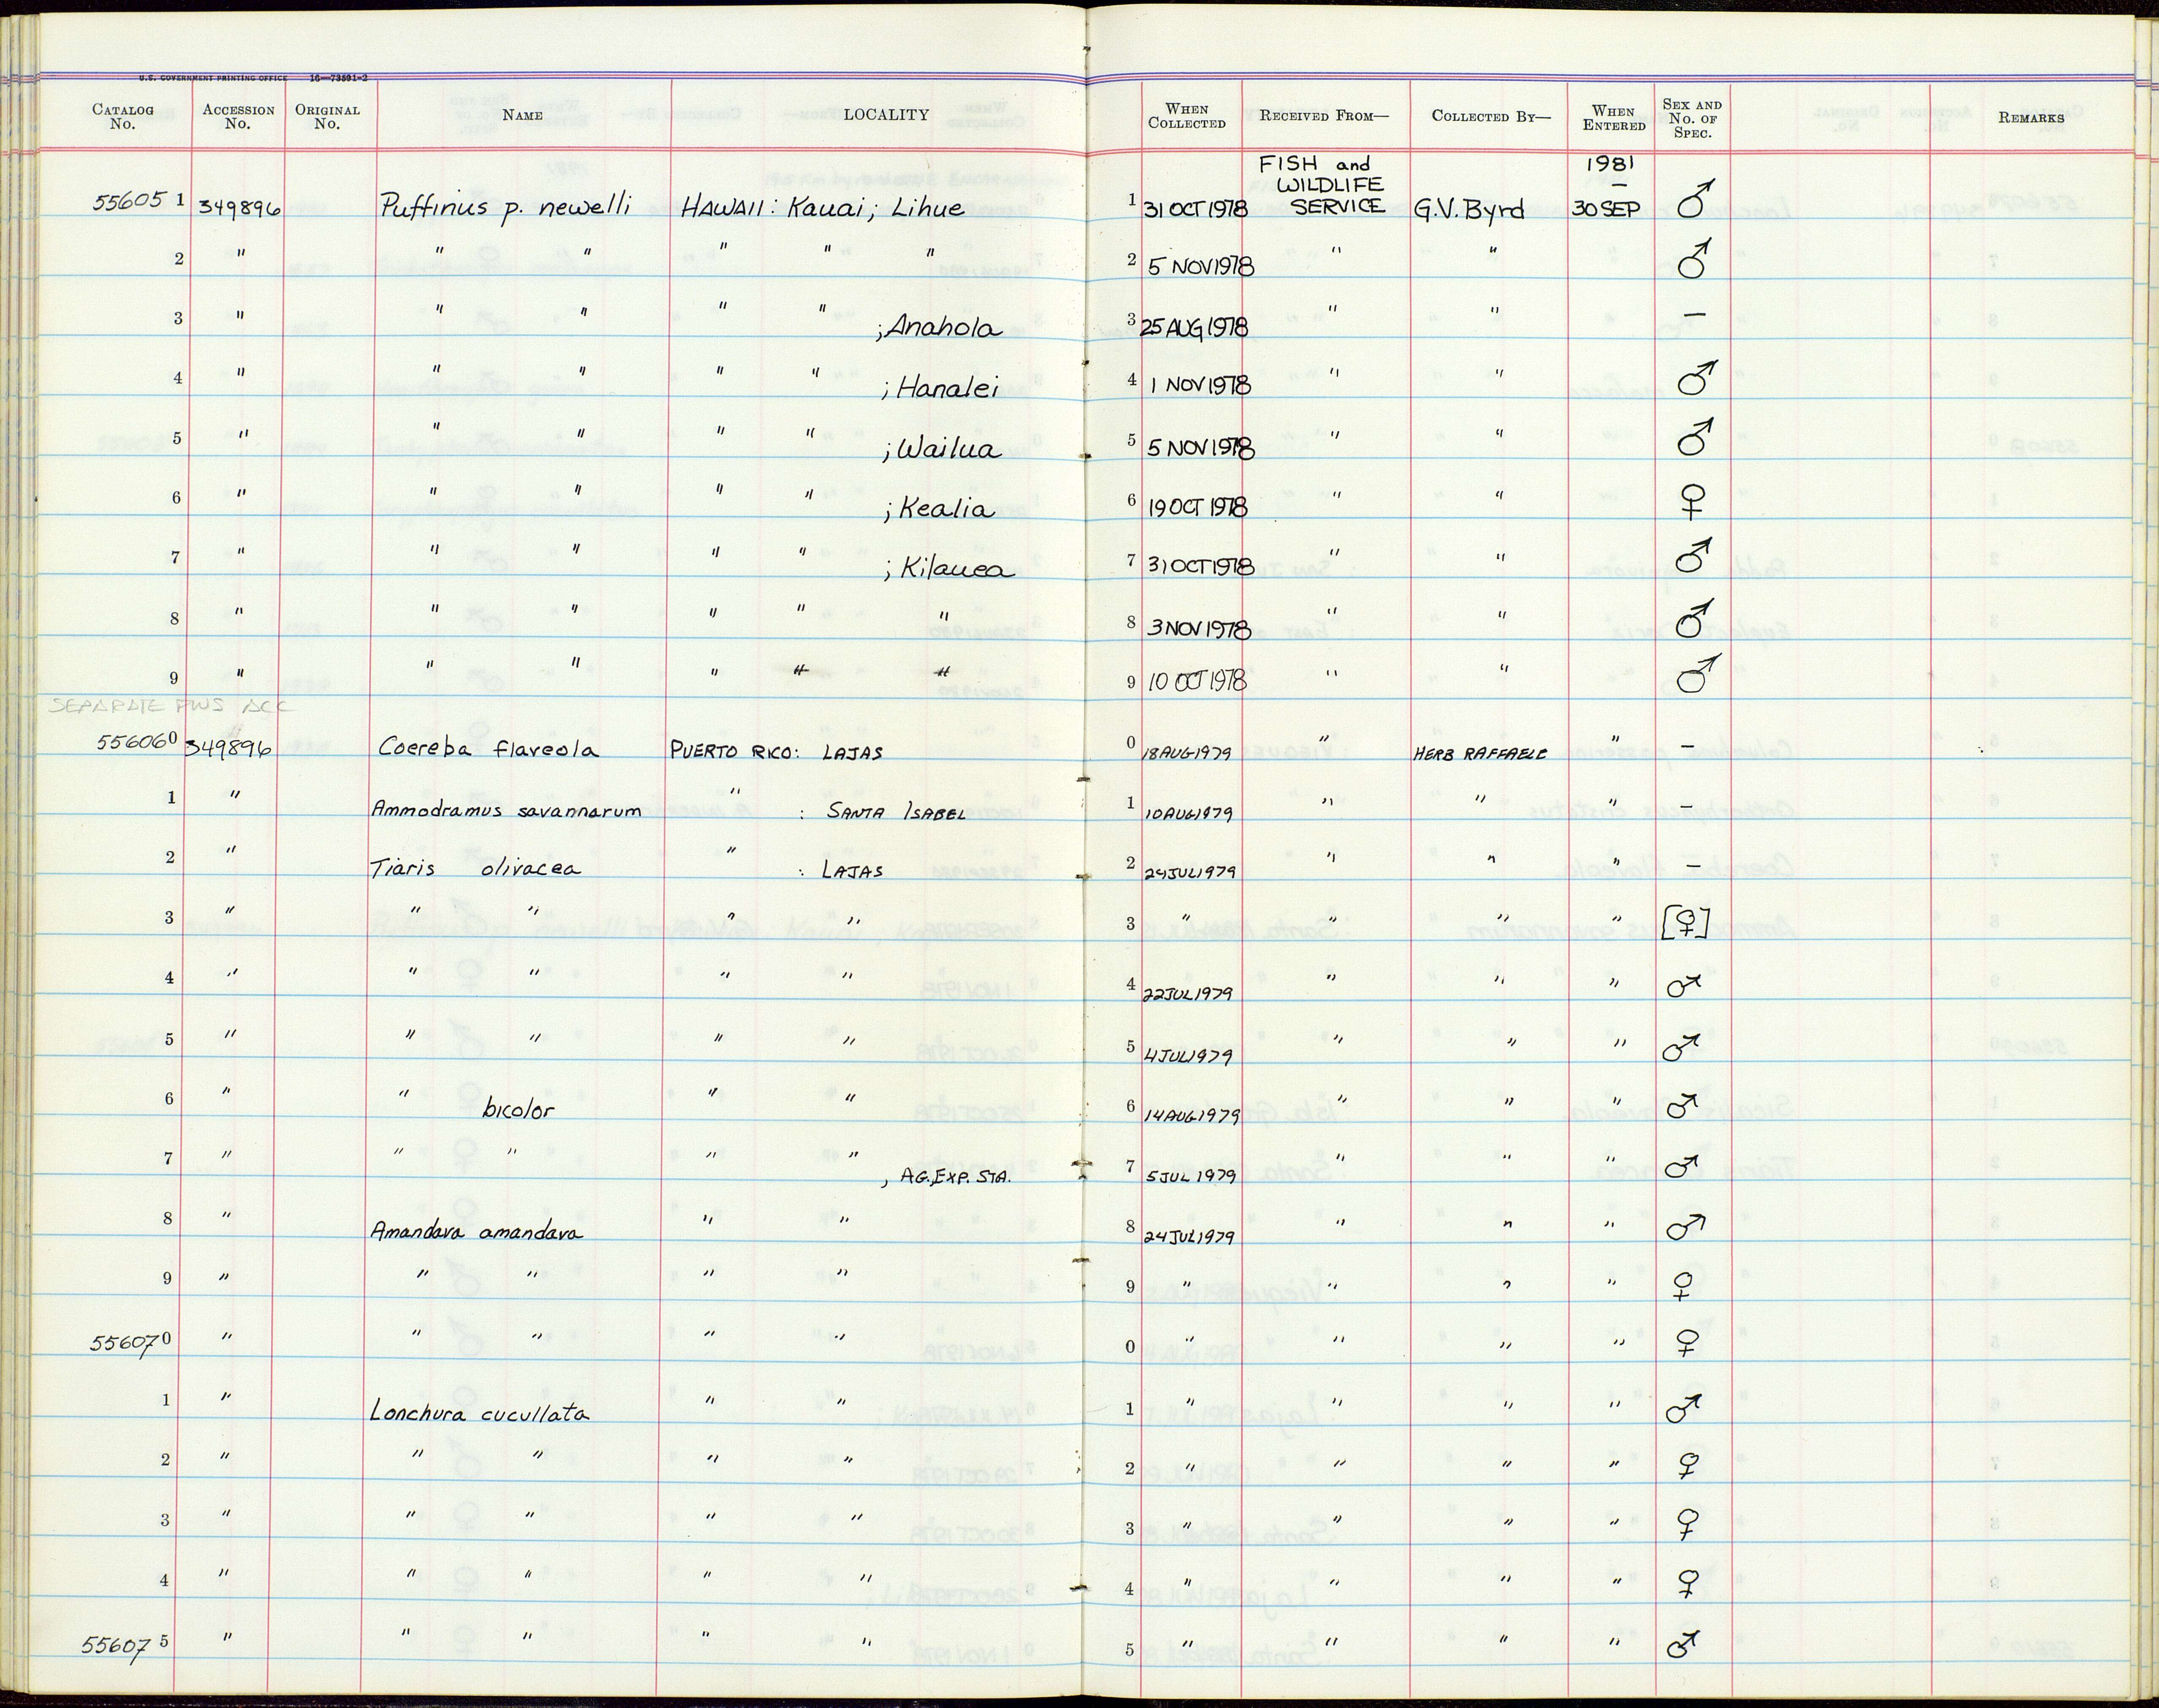 U.S. GOVERNMENT PRINTING OFFICE 16—73591-2
CATALOG No. ACCESSION No. ORIGINAL No. NAME LOCALITY WHEN COLLECTED RECEIVED FROM— COLLECTED BY— WHEN ENTERED SEX AND No. OF SPEC. REMARKS
55605 1 349896 Puffinus p. newelli HAWAII: Kauai; Lihue 1 31 OCT 1978 FISH and WILDLIFE SERVICE G.V. Byrd 1981 — 30 SEP ♂
2 " " " " " " 2 5 NOV 1978 " " ♂
3 " " " " " ; Anahola 3 25 AUG 1978 " " —
4 " " " " " ; Hanalei 4 1 NOV 1978 " " ♂
5 " " " " " ; Wailua 5 5 NOV 1978 " " ♂
6 " " " " " ; Kealia 6 19 OCT 1978 " " ♀
7 " " " " " ; Kilauea 7 31 OCT 1978 " " ♂
8 " " " " " " 8 3 NOV 1978 " " ♂
9 " " " " " " 9 10 OCT 1978 " " ♂
SEPARATE FWS ACC
55606 0 349896 Coereba flaveola PUERTO RICO: LAJAS 0 18 AUG 1979 " HERB RAFFAELE " —
1 " Ammodramus savannarum " : SANTA ISABEL 1 10 AUG 1979 " " " —
2 " Tiaris olivacea " : LAJAS 2 24 JUL 1979 " " " —
3 " " " " " 3 " " " " [♀]
4 " " " " " 4 22 JUL 1979 " " " ♂
5 " " " " " 5 4 JUL 1979 " " " ♂
6 " " bicolor " " 6 14 AUG 1979 " " " ♂
7 " " " " " , AG. EXP. STA. 7 5 JUL 1979 " " " ♂
8 " Amandava amandava " " 8 24 JUL 1979 " " " ♂
9 " " " " " 9 " " " " ♀
55607 0 " " " " " 0 " " " " ♀
1 " Lonchura cucullata " " 1 " " " " ♂
2 " " " " " 2 " " " " ♀
3 " " " " " 3 " " " " ♀
4 " " " " " 4 " " " " ♀
55607 5 " " " " " 5 " " " " ♂